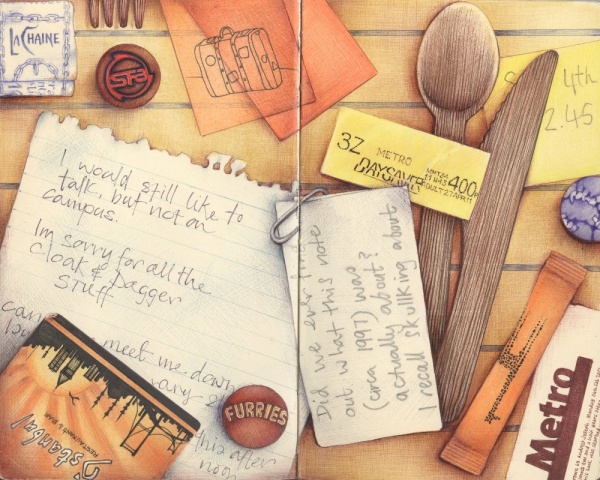 LA CHAINE
SF3
4th
2.45
3Z METRO
DAYSAVER
400
ADULT 27 APR 11
I would still like to
talk, but not on
campus.
Im sorry for all the
Cloak & Dagger
Stuff
can
meet me down
this after
noon
Did we ever find
out what this note
(circa 1997) was?
actually about?
I recall skullking about
Istanbul
RESTAURANT
FURRIES
Metro